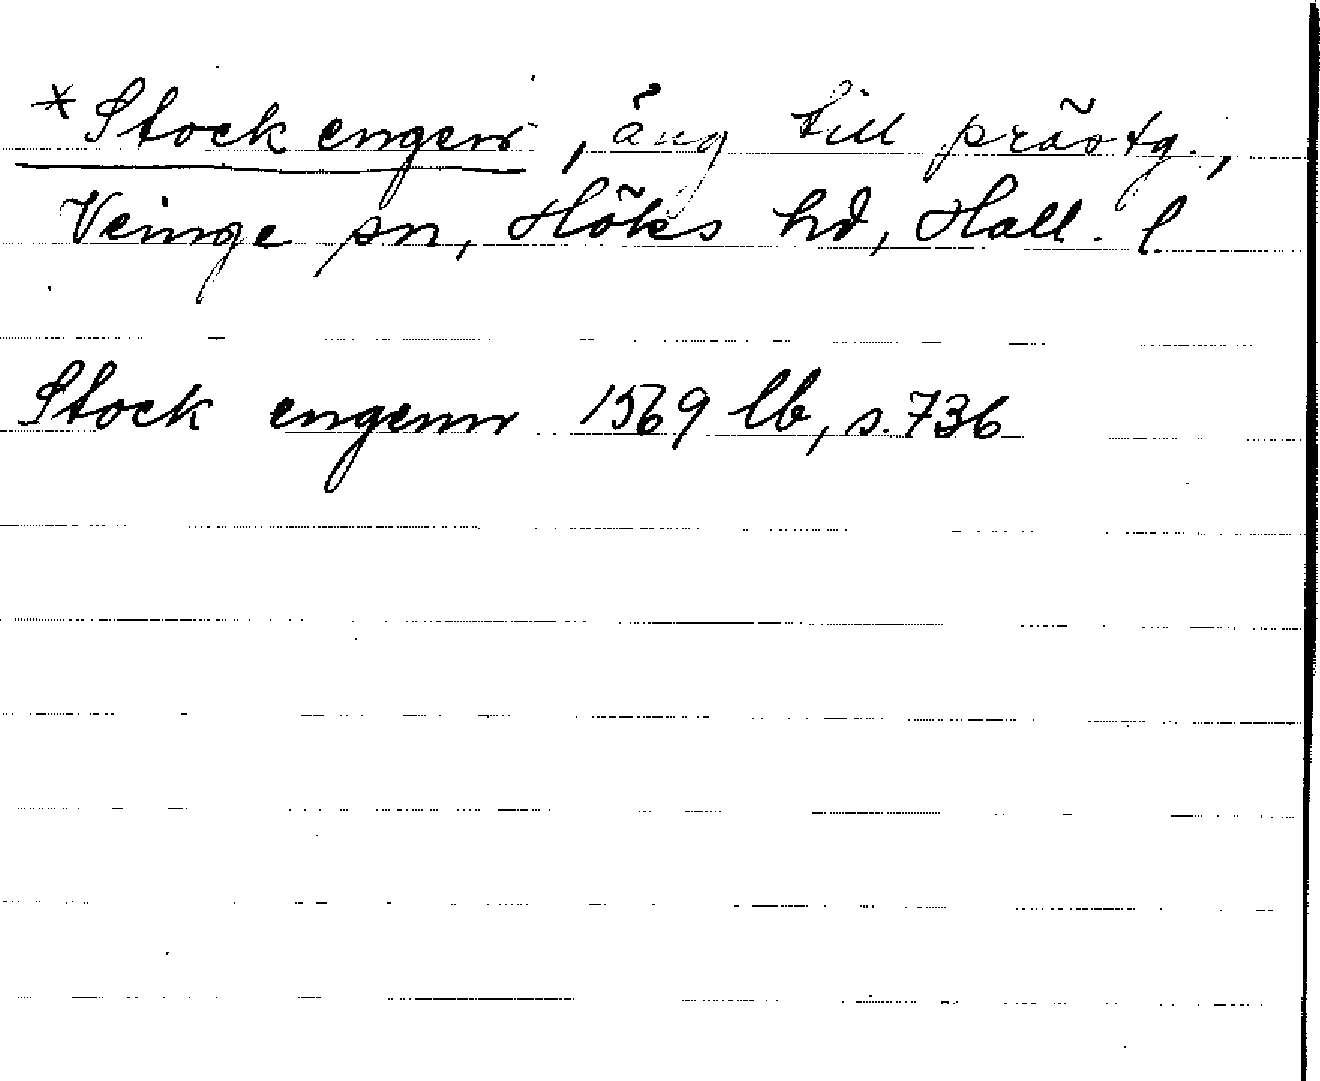 *Stock engen, äng till prästg.,
Veinge sn, Höks hd, Hall. l
Stock engenn 1569 lb, s. 736